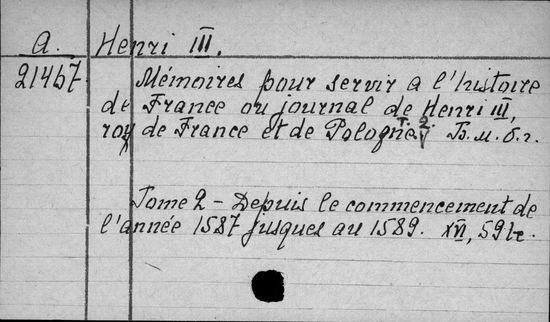 A. Henri III.
21467 Mémoires pour servir a l'histoire
de France ou journal de Henri III,
roy de France et de Pologne. Т. 2 Б. м. б. г.
Tome 2 - Depuis le commencement de
l'année 1587 jusques au 1589. XVI, 591 с.